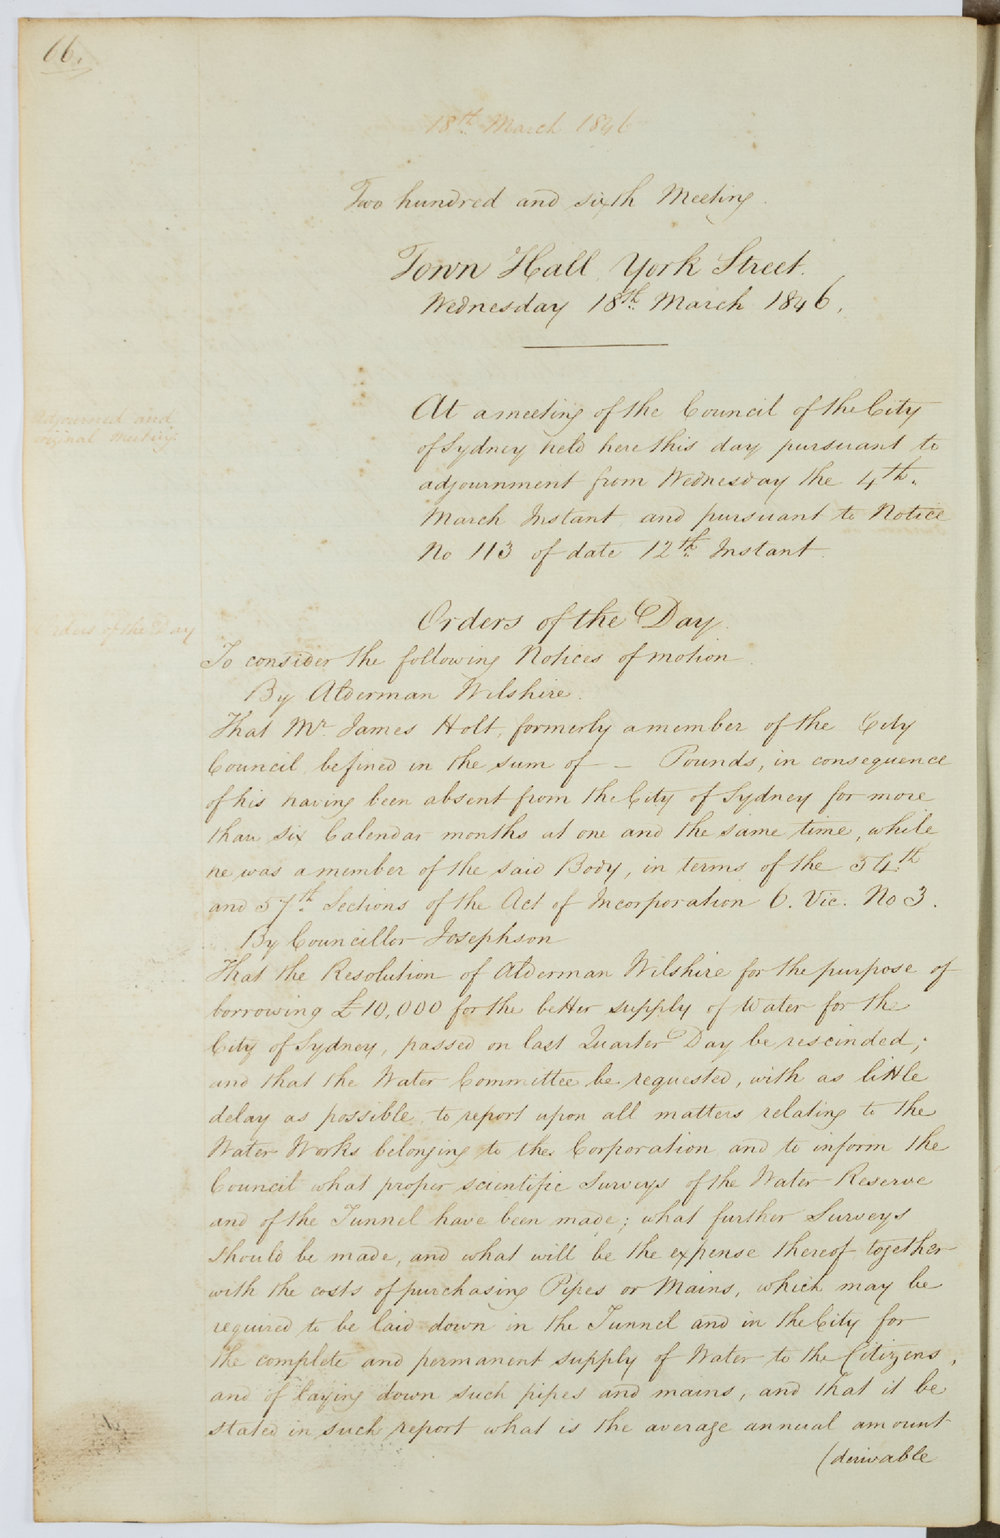 66.
18th March 1846
Two hundred and sixth Meeting.
Town Hall, York Street.
Wednesday 18th March 1846.
Adjourned and
original Meeting
At a meeting of the Council of the City
of Sydney held here this day pursuant to
adjournment from Wednesday the 4th.
March Instant, and pursuant to Notice
No 113 of date 12th Instant.
Orders of the Day.
Orders of the Day
To consider the following Notices of motion
By Alderman Wilshire.
That Mr. James Holt, formerly a member of the City
Council, be fined in the sum of – – Pounds, in consequence
of his having been absent from the City of Sydney for more
than six Calendar months at one and the same time, while
he was a member of the said Body, in terms of the 54th
and 57th Sections of the Act of Incorporation 6. Vic. No 3.
By Councillor Josephson
That the Resolution of Alderman Wilshire for the purpose of
borrowing £10,000 for the better supply of Water for the
City of Sydney, passed on last Quarter Day be rescinded;
and that the Water Committee be requested, with as little
delay as possible, to report upon all matters relating to the
Water Works belonging to the Corporation and to inform the
Council what proper scientific Surveys of the Water Reserve
and of the Tunnel have been made; what further Surveys
should be made, and what will be the expense thereof together
with the costs of purchasing Pipes or Mains, which may be
required to be laid down in the Tunnel and in the City for
the complete and permanent supply of Water to the Citizens,
and of laying down such pipes and mains, and that it be
stated in such report what is the average annual amount
(derivable